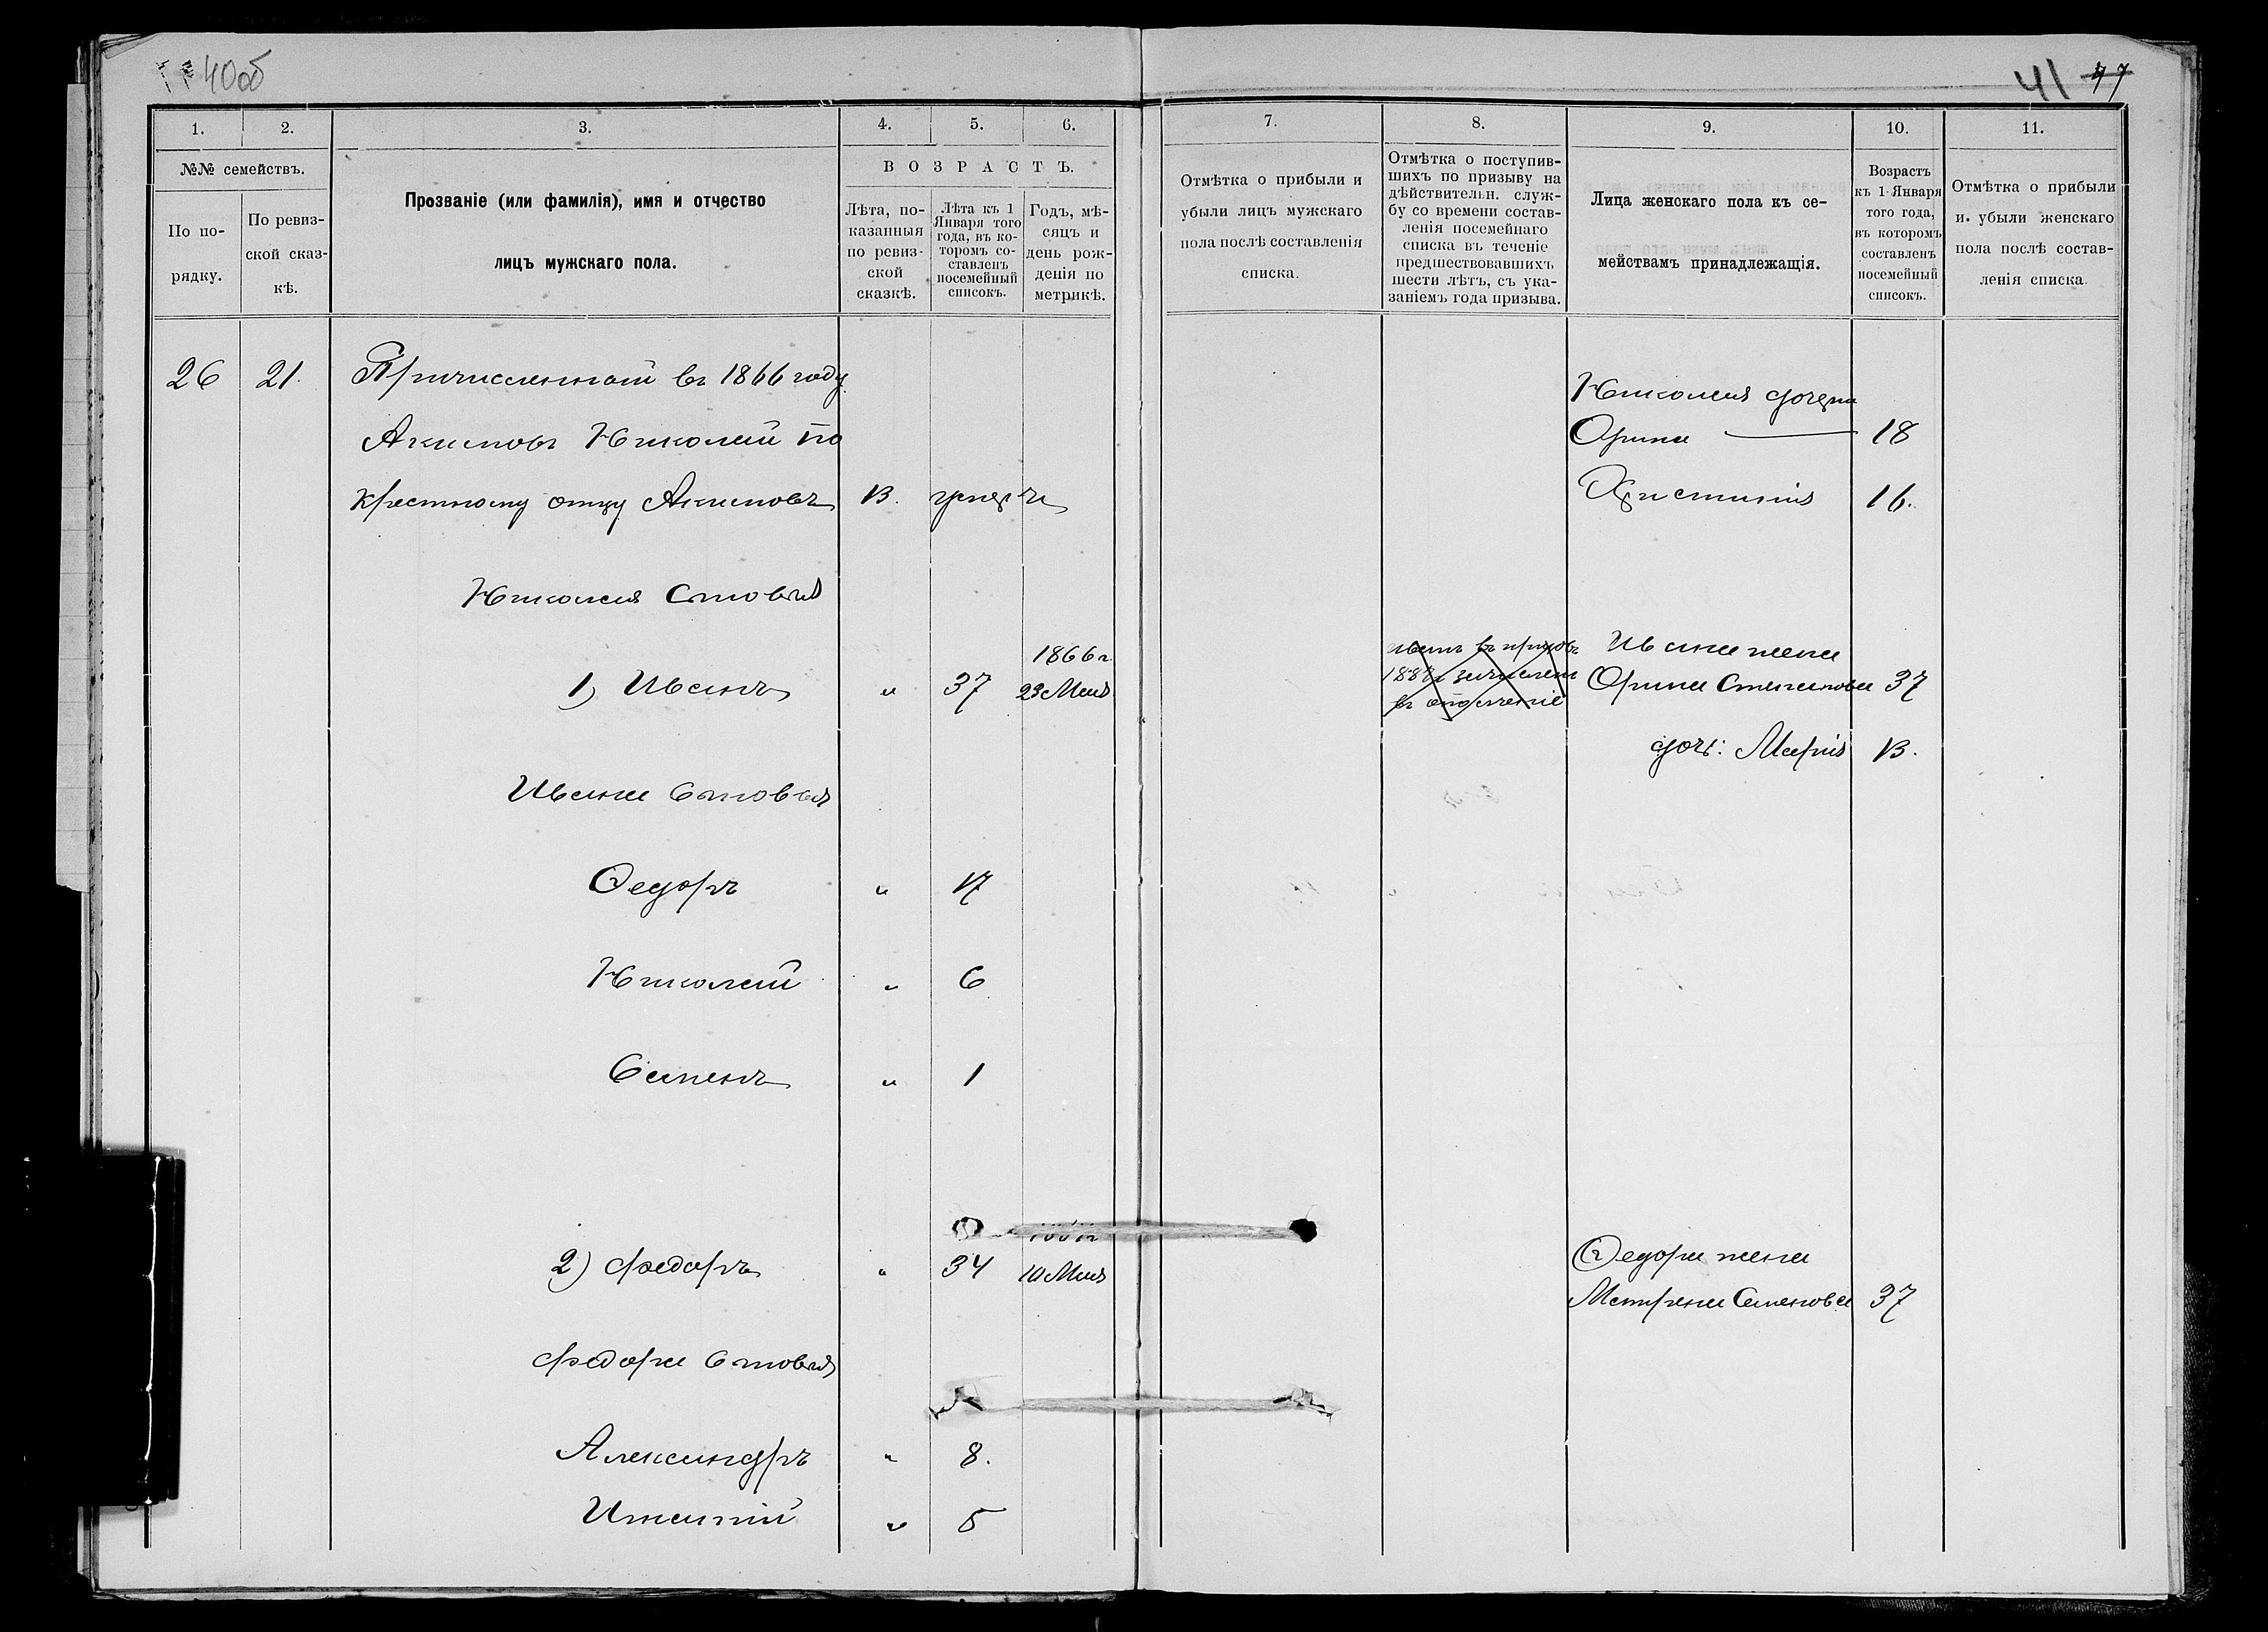 40об
41 47
1.
2.
3.
4.
5.
6.
№№ семействъ.
По по-
рядку.
По ревиз-
ской сказ-
кѣ.
Прозваніе (или фамилія), имя и отчество
лицъ мужскаго пола.
ВОЗРАСТЪ.
Лѣта, по-
казанныя
по ревиз-
ской
сказкѣ.
Лѣта къ 1
Января того
года, въ ко-
торомъ со-
ставленъ
посемейный
списокъ.
Годъ, мѣ-
сяцъ и
день рож-
денія по
метрикѣ.
26 21. Причисленный въ 1866 году
Акимовъ Николай по
крестному отцу Акимовъ 13. умеръ
Николая сыновья
1866 г.
1) Иванъ " 37 23 Мая
Ивана сыновья
Ѳедоръ " 17
Николай " 6
Семенъ " 1
2) Федоръ " 34 10 Мая
Федора сыновья
Александръ " 8.
Игнатій " 5
7.
8.
9.
10.
11.
Отмѣтка о прибыли и
убыли лицъ мужскаго
пола послѣ составленія
списка.
Отмѣтка о поступив-
шихъ по призыву на
дѣйствительн. служ-
бу со времени состав-
ленія посемейнаго
списка въ теченіе
предшествовавшихъ
шести лѣтъ, съ ука-
заніемъ года призыва.
Лица женскаго пола къ се-
мействамъ принадлежащія.
Возрастъ
къ 1 Января
того года,
въ которомъ
составленъ
посемейный
списокъ.
Отмѣтка о прибыли
и. убыли женскаго
пола послѣ состав-
ленія списка.
Николая дочери
Орина 18
Христинія 16.
Ивана жена
зачисленъ Орина Степанова 37
въ ополченіе
дочь: Марія 13.
Ѳедора жена
Матрена Семенова 37